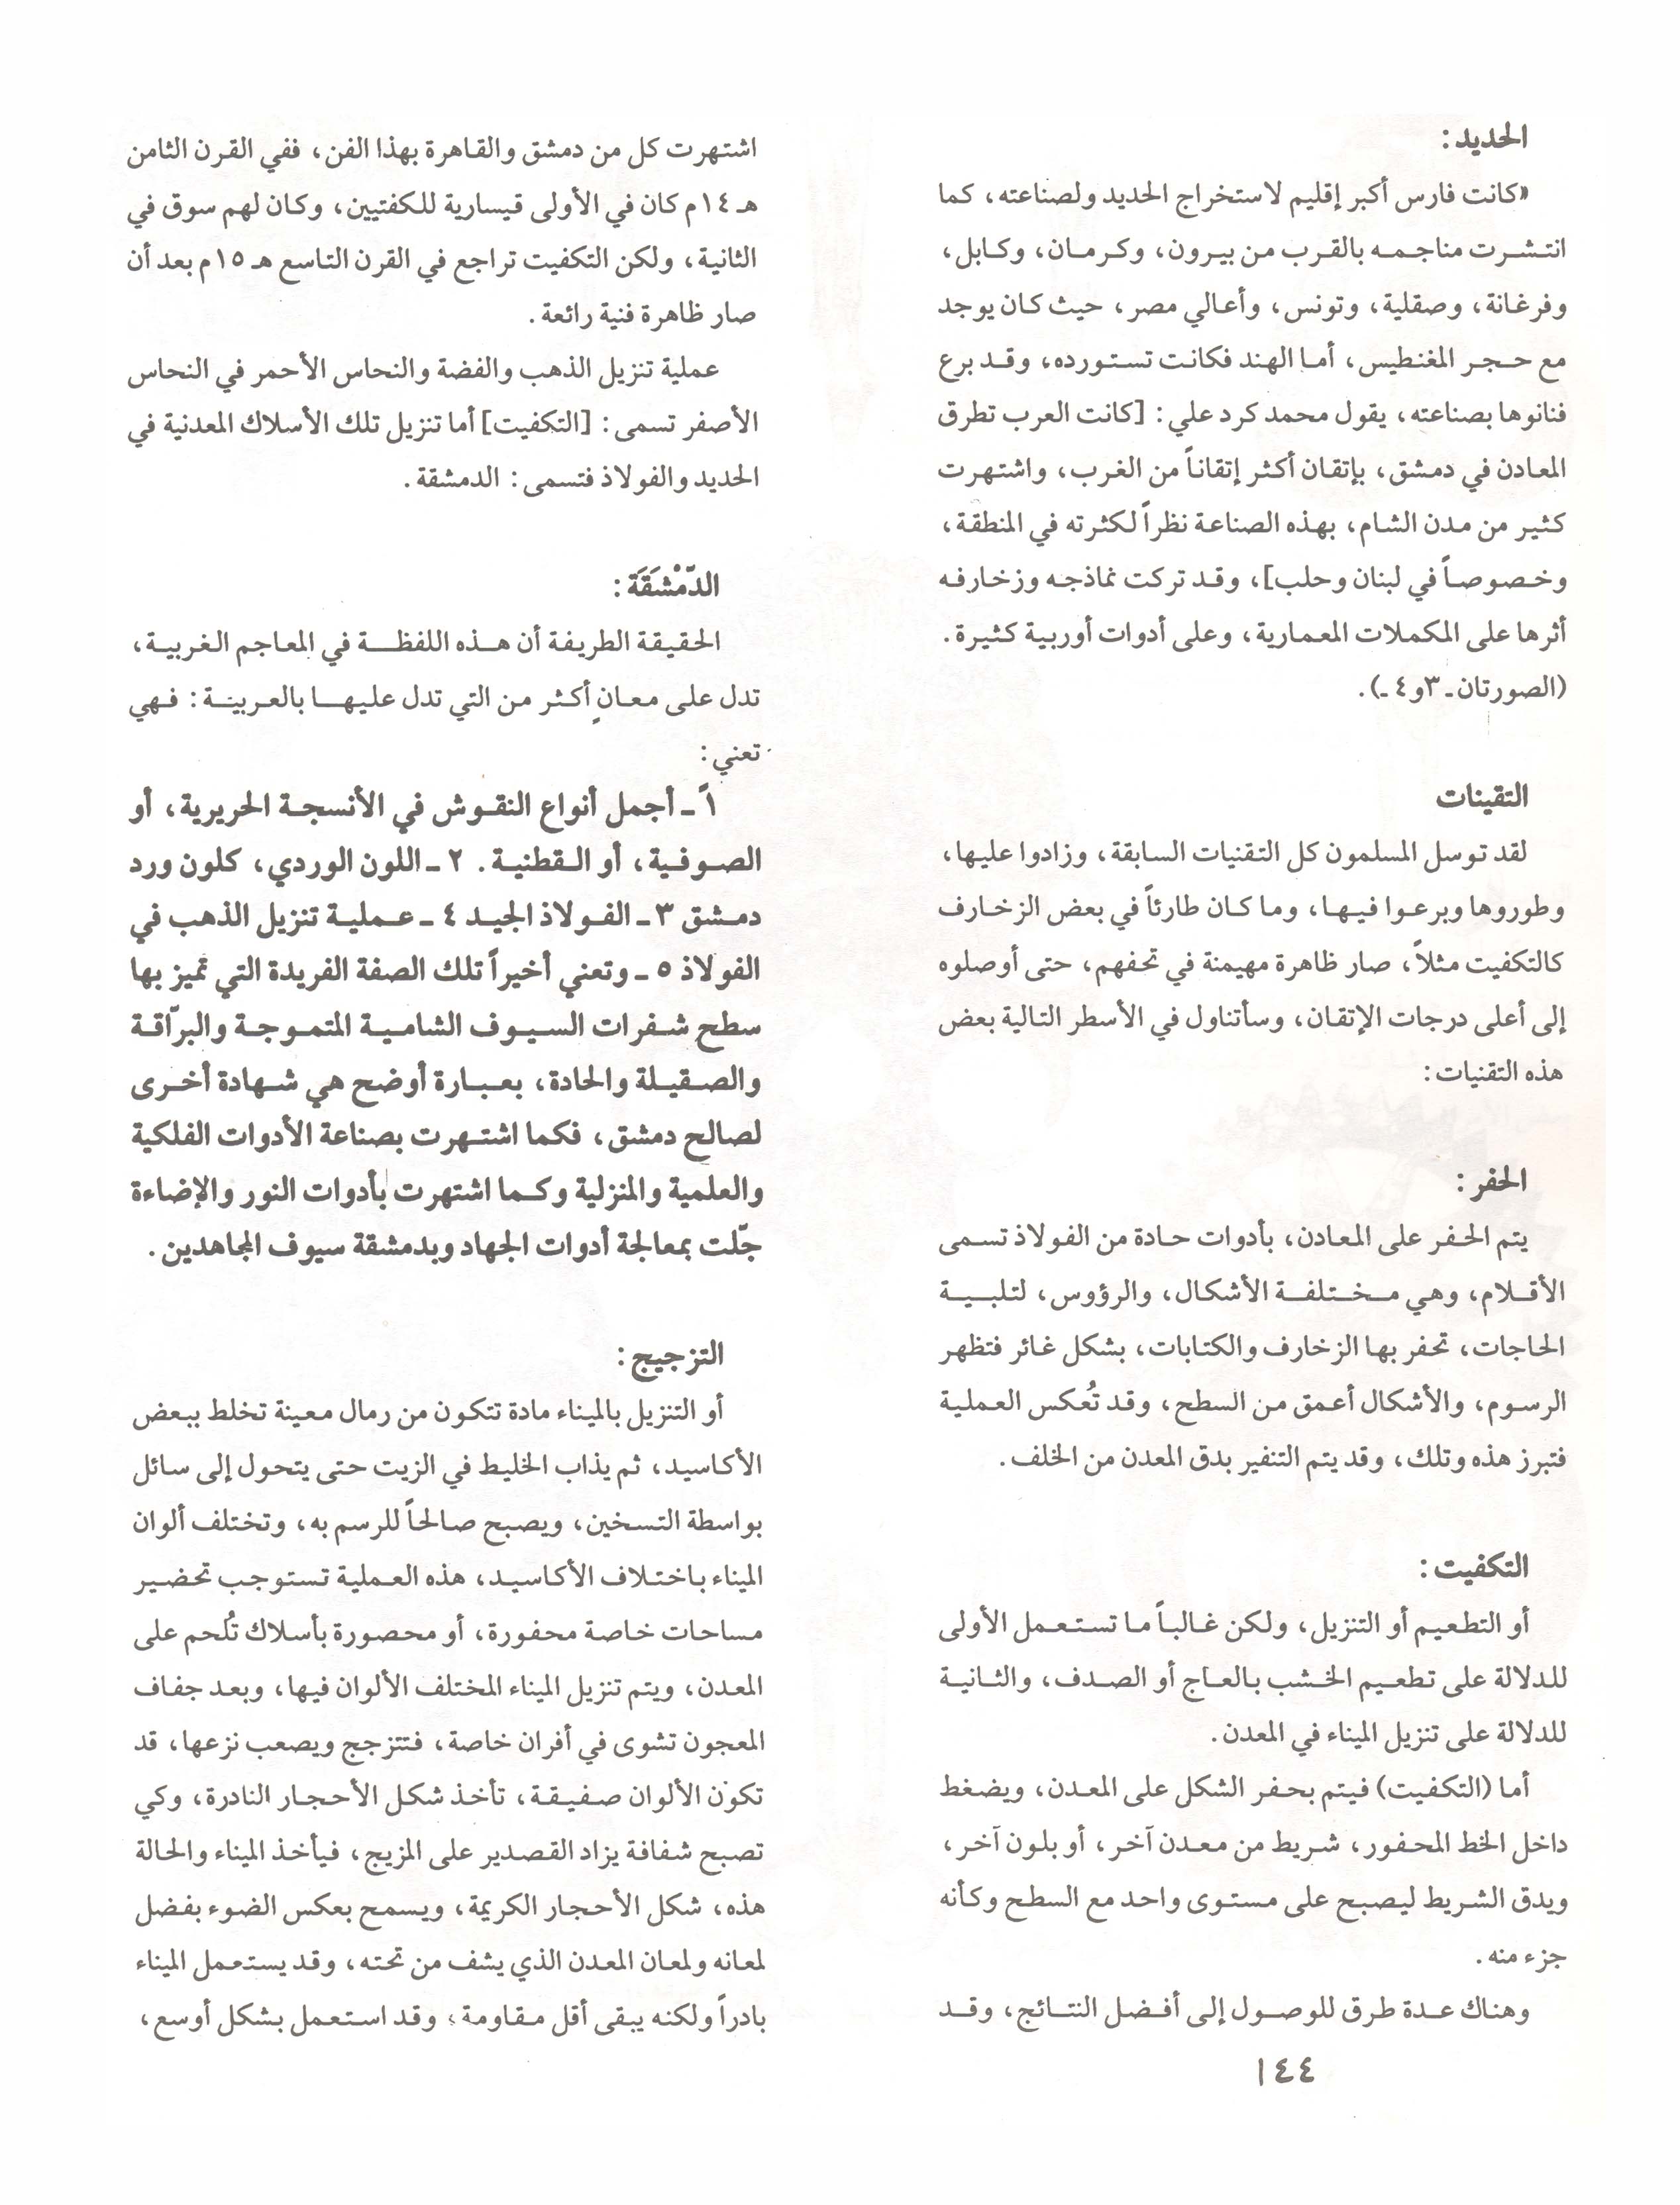 الحديد:
«كانت فارس أكبر إقليم لاستخراج الحديد ولصناعته، كما
انتشرت مناجمه بالقرب من بيرون، وكرمان، وكابل،
وفرغانة، وصقلية، وتونس، وأعالي مصر، حيث كان يوجد
مع حجر المغنطيس، أما الهند فكانت تستورده، وقد برع
فنانوها بصناعته، يقول محمد كرد علي: [كانت العرب تطرق
المعادن في دمشق، بإتقان أكثر إتقاناً من الغرب، واشتهرت
كثير من مدن الشام، بهذه الصناعة نظراً لكثرته في المنطقة،
وخصوصاً في لبنان وحلب]، وقد تركت نماذجه وزخارفه
أثرها على المكملات المعمارية، وعلى أدوات أوربية كثيرة.
(الصورتان ـ ٣و٤ ـ).
التقينات
لقد توسل المسلمون كل التقنيات السابقة، وزادوا عليها،
وطوروها وبرعوا فيها، وما كان طارئاً في بعض الزخارف
كالتكفيت مثلاً، صار ظاهرة مهيمنة في تحفهم، حتى أوصلوه
إلى أعلى درجات الإتقان، وسأتناول في الأسطر التالية بعض
هذه التقنيات:
الحفر:
يتم الحفر على المعادن، بأدوات حادة من الفولاذ تسمى
الأقلام، وهي مختلفة الأشكال، والرؤوس، لتلبية
الحاجات، تحفر بها الزخارف والكتابات، بشكل غائر فتظهر
الرسوم، والأشكال أعمق من السطح، وقد تُعكس العملية
فتبرز هذه وتلك، وقد يتم التنفير بدق المعدن من الخلف.
التكفيت:
أو التطعيم أو التنزيل، ولكن غالباً ما تستعمل الأولى
للدلالة على تطعيم الخشب بالعاج أو الصدف، والثانية
للدلالة على تنزيل الميناء في المعدن.
أما (التكفيت) فيتم بحفر الشكل على المعدن، ويضغط
داخل الخط المحفور، شريط من معدن آخر، أو بلون آخر،
ويدق الشريط ليصبح على مستوى واحد مع السطح وكأنه
جزء منه.
وهناك عدة طرق للوصول إلى أفضل النتائج، وقد
اشتهرت كل من دمشق والقاهرة بهذا الفن، ففي القرن الثامن
هـ ١٤م كان في الأولى قيسارية للكفتيين، وكان لهم سوق في
الثانية، ولكن التكفيت تراجع في القرن التاسع هـ ١٥م بعد أن
صار ظاهرة فنية رائعة.
عملية تنزيل الذهب والفضة والنحاس الأحمر في النحاس
الأصفر تسمى: [التكفيت] أما تنزيل تلك الأسلاك المعدنية في
الحديد والفولاذ فتسمى: الدمشقة.
الدّمْشَقَة:
الحقيقة الطريفة أن هذه اللفظة في المعاجم الغربية،
تدل على معانٍ أكثر من التي تدل عليها بالعربية: فهي
تعني:
١ً ـ أجمل أنواع النقوش في الأنسجة الحريرية، أو
الصوفية، أو القطنية. ٢ ـ اللون الوردي، كلون ورد
دمشق ٣ ـ الفولاذ الجيد ٤ ـ عملية تنزيل الذهب في
الفولاذ ٥ ـ وتعني أخيراً تلك الصفة الفريدة التي تميز بها
سطح شفرات السيوف الشامية المتموجة والبرّاقة
والصقيلة والحادة، بعبارة أوضح هي شهادة أخرى
لصالح دمشق، فكما اشتهرت بصناعة الأدوات الفلكية
والعلمية والمنزلية وكما اشتهرت بأدوات النور والإضاءة
جّلت بمعالجة أدوات الجهاد وبدمشقة سيوف المجاهدين.
التزجيج:
أو التنزيل بالميناء مادة تتكون من رمال معينة تخلط ببعض
الأكاسيد، ثم يذاب الخليط في الزيت حتى يتحول إلى سائل
بواسطة التسخين، ويصبح صالحاً للرسم به، وتختلف ألوان
الميناء باختلاف الأكاسيد، هذه العملية تستوجب تحضير
مساحات خاصة محفورة، أو محصورة بأسلاك تُلحم على
المعدن، ويتم تنزيل الميناء المختلف الألوان فيها، وبعد جفاف
المعجون تشوى في أفران خاصة، فتتزجج ويصعب نزعها، قد
تكون الألوان صفيقة، تأخذ شكل الأحجار النادرة، وكي
تصبح شفافة يزاد القصدير على المزيج، فيأخذ الميناء والحالة
هذه، شكل الأحجار الكريمة، ويسمح بعكس الضوء بفضل
لمعانه ولمعان المعدن الذي يشف من تحته، وقد يستعمل الميناء
بادراً ولكنه يبقى أقل مقاومة، وقد استعمل بشكل أوسع،
١٤٤